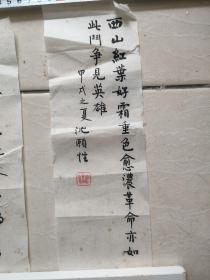 西山紅葉好霜重色愈濃革命亦如
此鬥爭見英雄
甲戌之夏沈願性